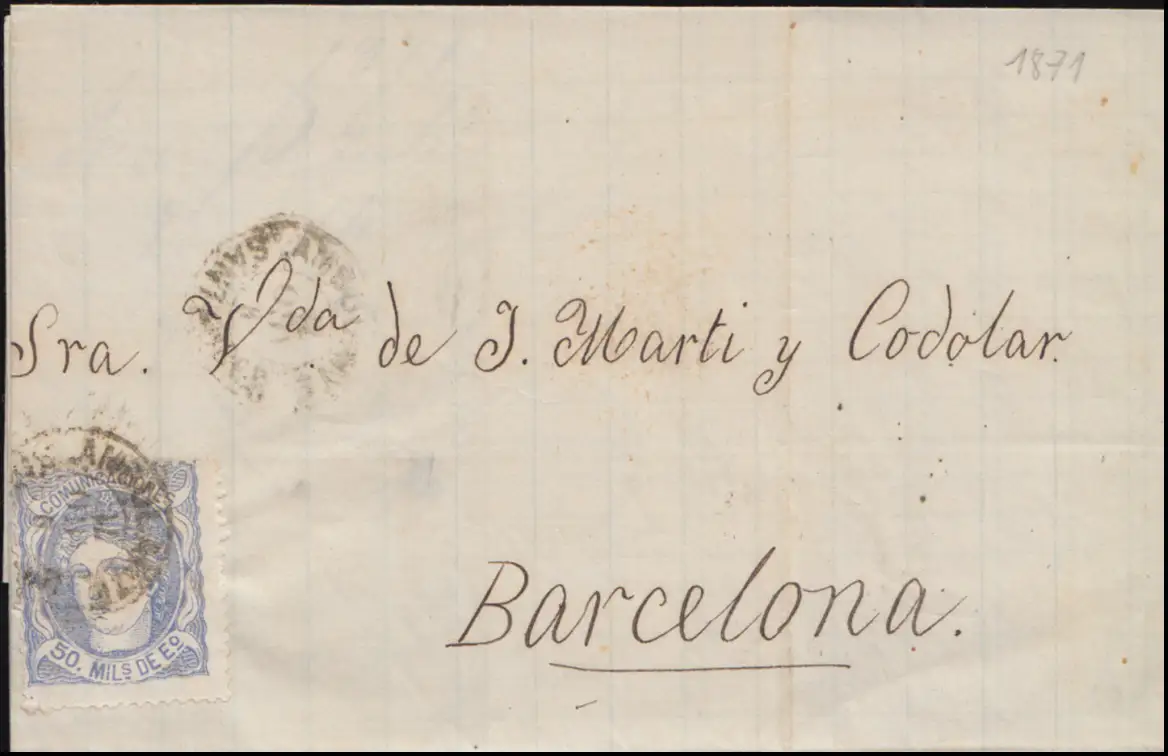 1871
Sra. Vda de J. Marti y Codolar.
Barcelona.
COMUNICACIONES
50. MILS. DE EO